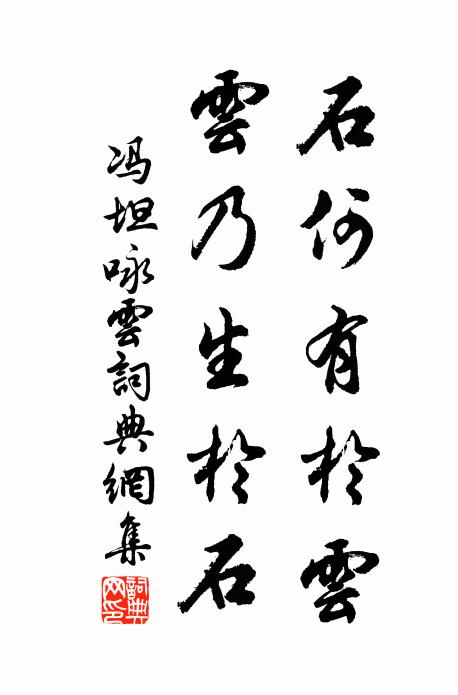 石何有於雲
雲乃生於石
冯坦咏雲詞典網集
詞典
网印